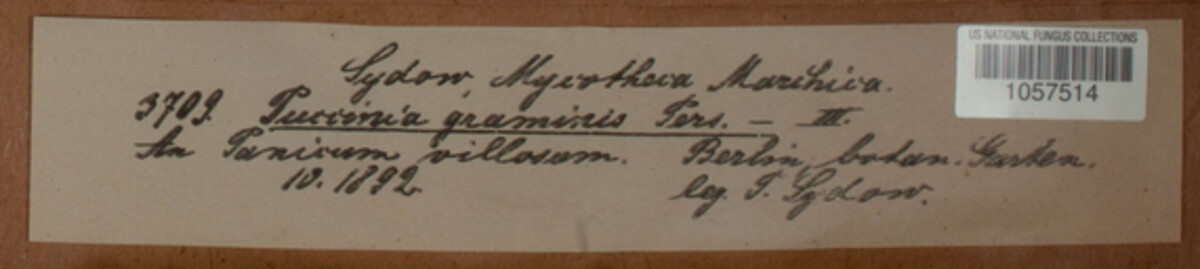 US NATIONAL FUNGUS COLLECTIONS
1057514
Sydow, Mycotheca Marchica.
3709. Puccinia graminis Pers. — III.
An Panicum villosum. Berlin, botan. Garten.
10. 1892. leg. P. Sydow.